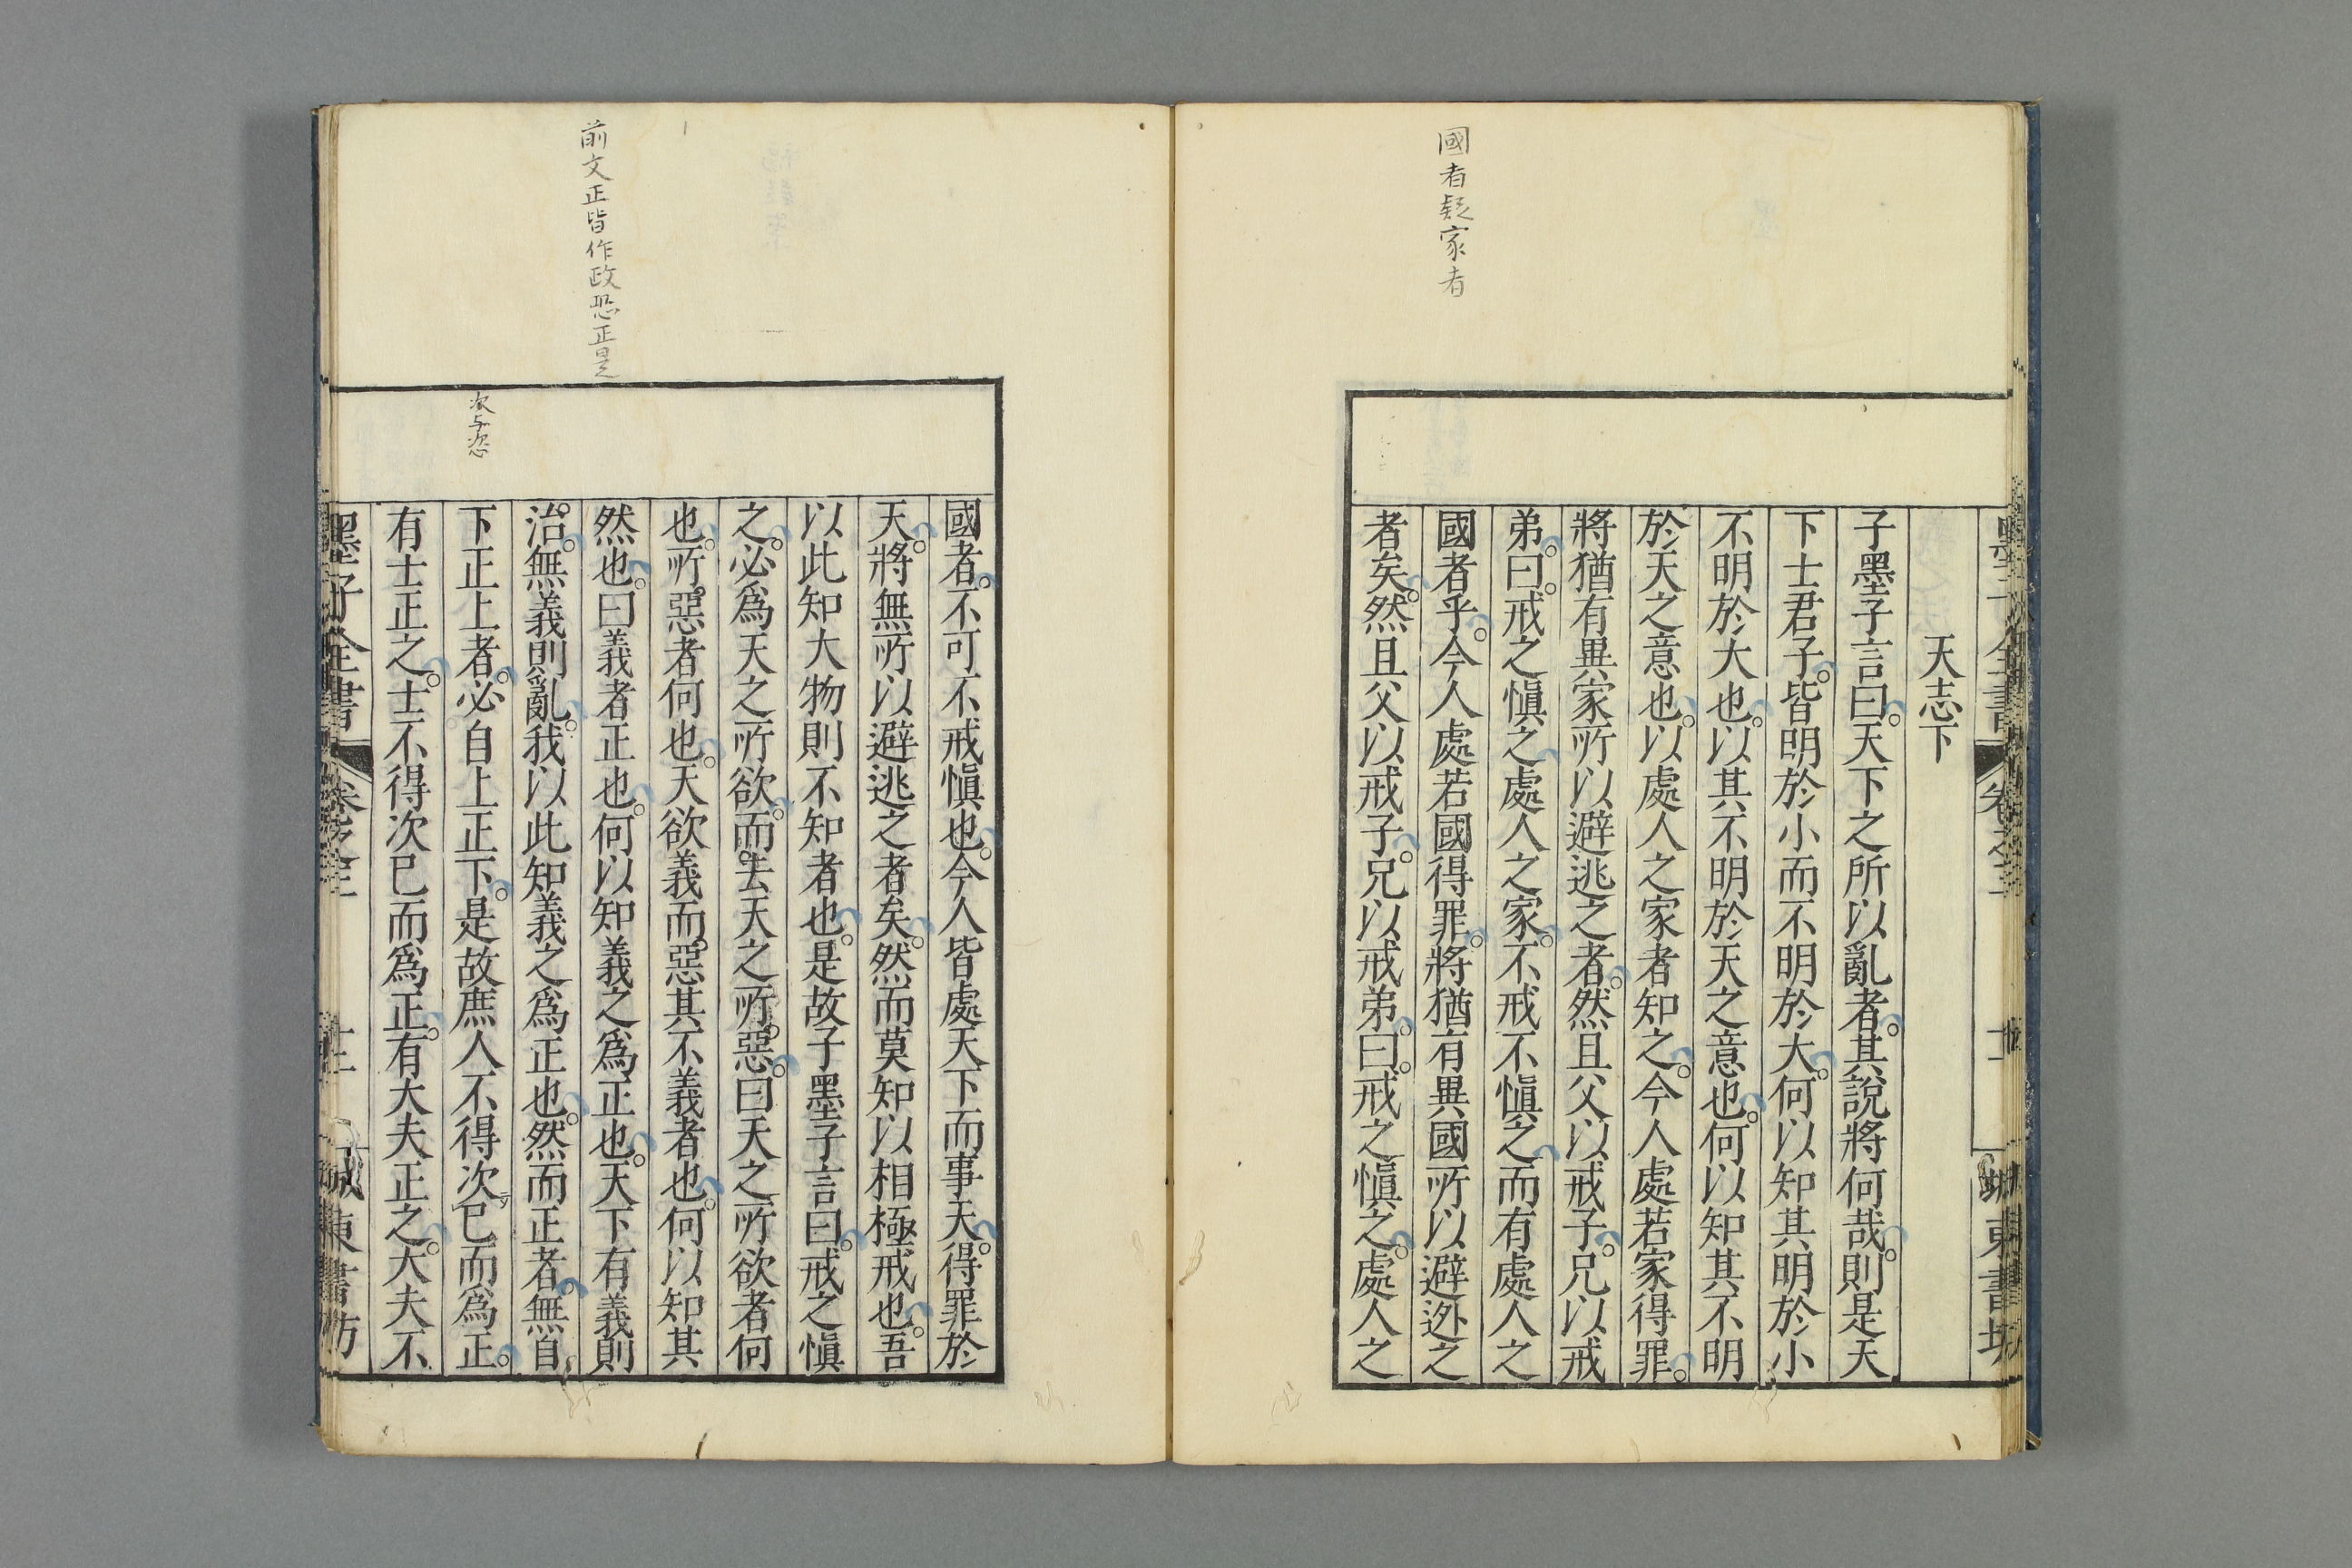 國者疑家者
天志下
子墨子言曰。天下之所以亂者。其說將何哉。則是天
下士君子。皆明於小而不明於大。何以知其明於小
不明於大也。以其不明於天之意也。何以知其不明
於天之意也。以處人之家者知之。今人處若家得罪。
將猶有異家所以避逃之者。然且父以戒子。兄以戒
弟。曰。戒之愼之處人之家。不戒不愼之而有處人之
國者乎。今人處若國得罪。將猶有異國所以避迯之
者矣。然且父以戒子。兄以戒弟。曰。戒之愼之。處人之
前文正皆作政恐正是
次与恣
國者。不可不戒愼也。今人皆處天下而事天。得罪於
天。將無所以避逃之者矣。然而莫知以相極戒也。吾
以此知大物則不知者也。是故子墨子言曰。戒之愼
之。必爲天之所欲。而去天之所惡。曰天之所欲者何
也。所惡者何也。天欲義而惡其不義者也。何以知其
然也。曰義者正也。何以知義之爲正也。天下有義則
治。無義則亂。我以此知義之爲正也。然而正者。無自
下正上者。必自上正下。是故庶人不得次巳而爲正。
有士正之。士不得次巳而爲正。有大夫正之。大夫不
墨子全書 卷之三